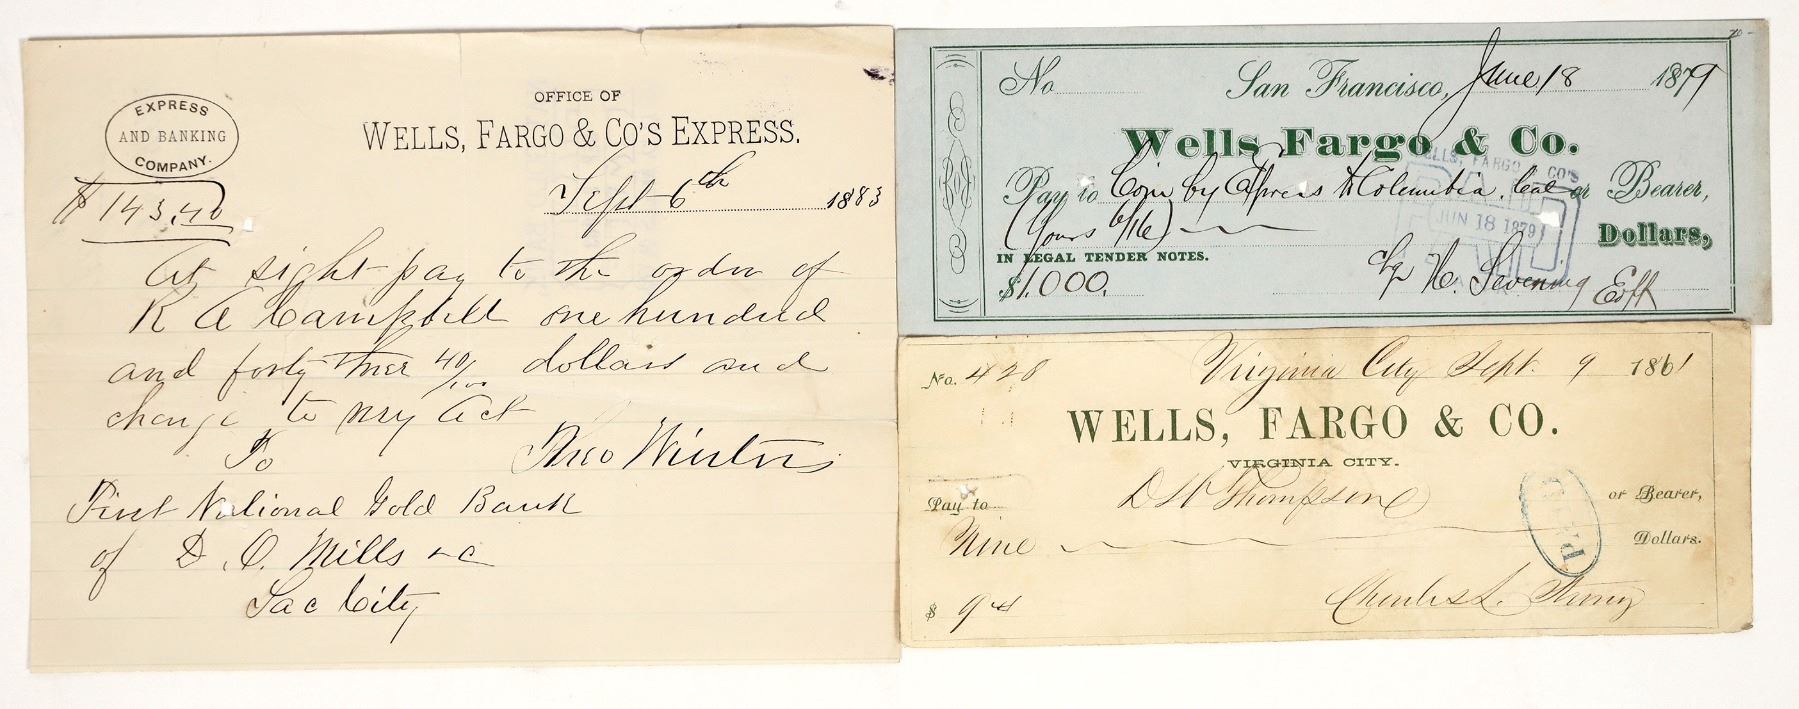 EXPRESS
AND BANKING
COMPANY.
OFFICE OF
WELLS, FARGO & CO'S EXPRESS.
Sept 6th 1883
$143.40
At sight pay to the order of
R A Campbell one hundred
and forty three 40/100 dollars and
charge to my Act
Theo Winters
To
First National Gold Bank
of D. O. Mills & C
Sac City
No San Francisco, June 18 1879
Wells Fargo & Co.
Pay to Coin by Express to Columbia. Cal or Bearer,
(Yours 6/16)
Dollars,
IN LEGAL TENDER NOTES.
$1.000.
WELLS, FARGO & CO'S
PAID
JUN 18 1879
No. 420 Virginia City Sept. 9 1861
WELLS, FARGO & CO.
VIRGINIA CITY.
Pay to D W Thompson or Bearer,
Nine Dollars.
PAID
$ 9
Charles L. Strong